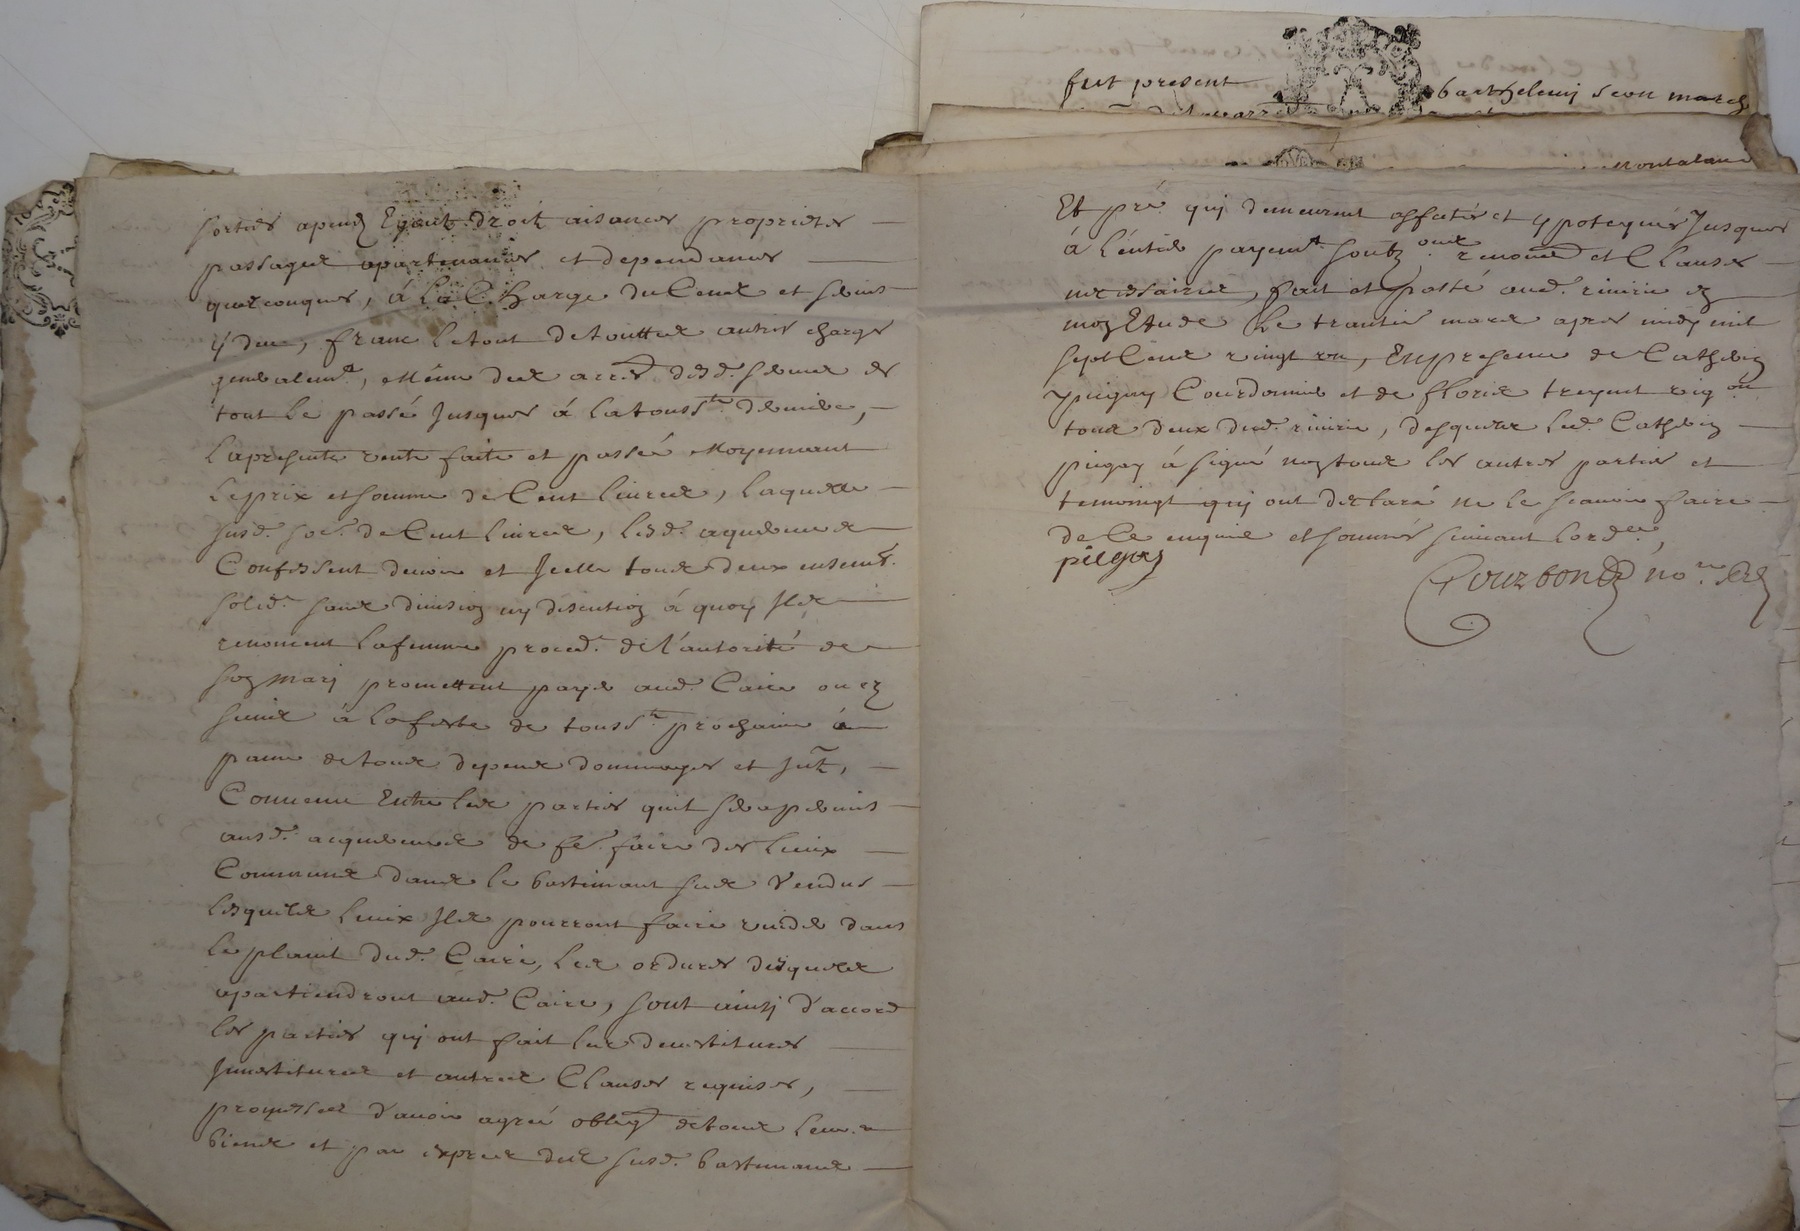 fut present
barthelemi seon march
Montalan
sorties apend Egoutz droitz aisances proprietes
passages apartenances et dependances
quelconques, á La Charge du Cens et servis
y deu, franc le tout de touttes autres charges
generalem.t, Même des arre desd. servis de
tout le passé Jusques á la touss.ts derniere,
La presente vente faite et passée Moyennant
Le prix et somme de Cent livres, laquelle
susd. so.e de Cent livres, lesd. aquereurs
Confessent devoir et Jcelle tous deux ensem.
solid.t sans division ny discution á quoy Jls
renoncent la femme proced.t de l'autorité de
son mari promettent payer aud. Caire ou es
siens á la feste de touss.ts prochaine á
paine de tous depens dommages et Jntz,
Convenu Entre les parties quil sera permis
ausd. acquereurs de fe. faire des lieux
Communs dans le bastimant sus Vendus
lesquels lieux Jls pourront faire vuider dans
le plassit dud. Caire, les ordures desquels
apartiendront aud. Caire, sont ainsi d'accord
les parties qui ont fait les devestitures
Jnvestitures et autres Clauses requises,
promesses d'avoir agreé oblig de tous leurs
biens et par exprés des susd. bastimans
Et pré qui demeurent affectés et ypotequés Jusques
á l'entier payem.t soubz renon et Clauses
necessaires, fait et passé aud. rivirie en
mon Etude Le trantie mars apres midy mil
sept Cent vingt un, En presence de Catherin
pieguy Courdonnier et de Floris treynet vig.on
tous deux dud. rivirie, desquels led. Catherin
pieguy á signé non tous les autres parties et
temoingt qui ont declaré ne le scavoir faire
de Ce enquis et sommés suivant lord.ce,
pieguy
Courbon no.re Royal